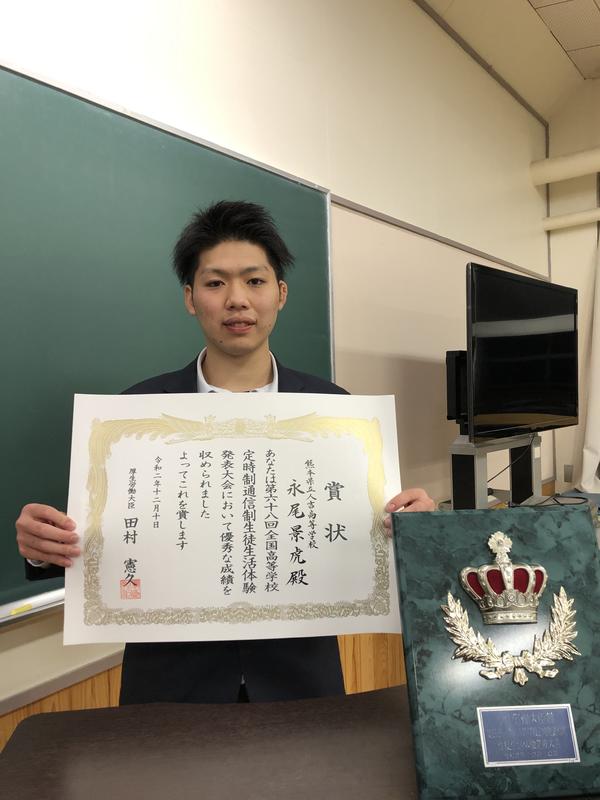 賞状
熊本県立人吉高等学校
永尾景虎殿
あなたは第六十八回全国高等学校
定時制通信制生徒生活体験
発表大会において優秀な成績を
収められました
よってこれを賞します
令和二年十二月十日
厚生労働大臣 田村 憲久